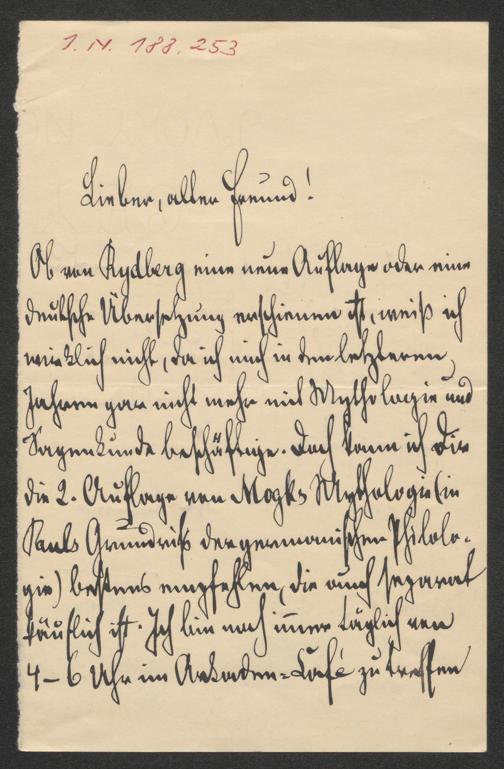 I. N. 188.253
Lieber, alter Freund!
Ob von Rydberg eine neue Auflage oder eine
deutsche Übersetzung erschienen ist, weiß ich
wirklich nicht, da ich mich in den letzteren
Jahren gar nicht mehr mit Mythologie und
Sagenkunde beschäftige. Doch kann ich Dir
die 2. Auflage von Mogks Mythologie (in
Pauls Grundriß der germanischen Philolo-
gie) bestens empfehlen, die auch separat
käuflich ist. Ich bin noch immer täglich von
4 – 6 Uhr im Arkaden-Café zu treffen